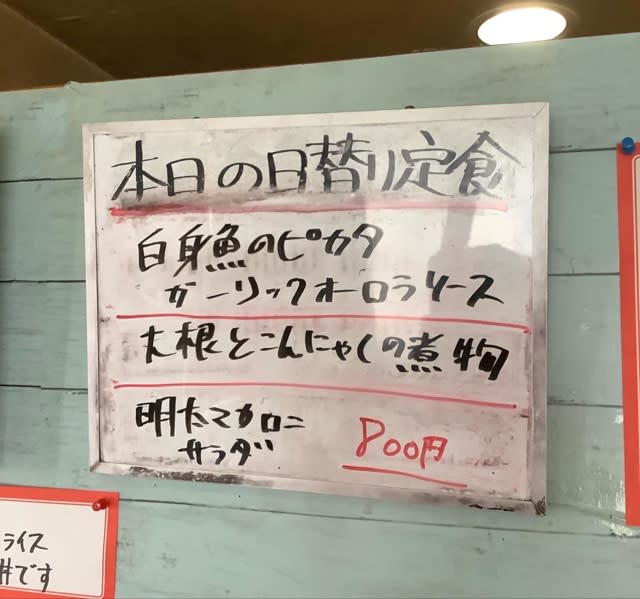 本日の日替り定食
白身魚のピカタ
ガーリックオーロラソース
大根とこんにゃくの煮物
明太マカロニ
サラダ
800円
ライス
丼です